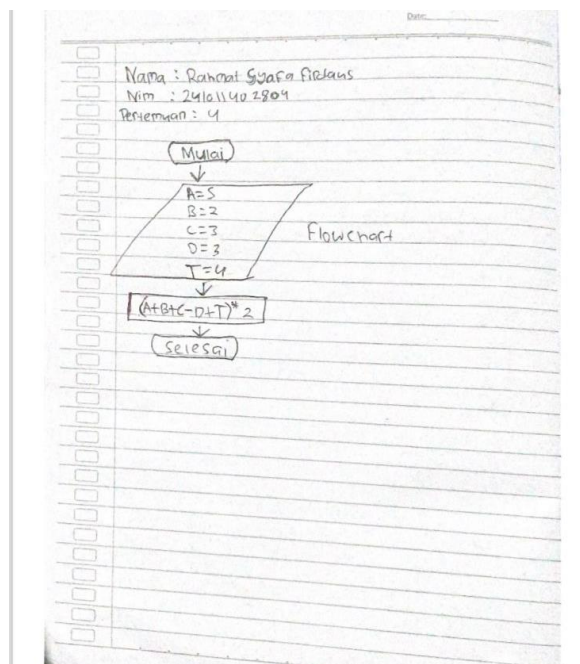 Date:
Nama : Rahmat Syafa Firdaus
Nim : 241011402804
Pertemuan : 4
Mulai
A=5
B=2
C=3
D=3
T=4
Flowchart
(A+B+C-D+T)* 2
Selesai